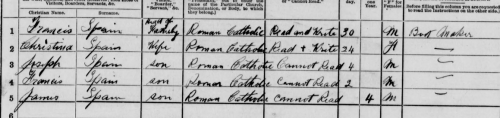 Christian Name. Surname.
1 Francis Spain Head of Family Roman Catholic Read and Write 30 M Boot Maker
2 Christina Spain Wife Roman Catholic Read & Write 24 F —
3 Joseph Spain son Roman Catholic Cannot Read 4 M —
4 Francis Spain son Roman Catholic Cannot Read 2 M —
5 James Spain son Roman Catholic Cannot Read 4 M —